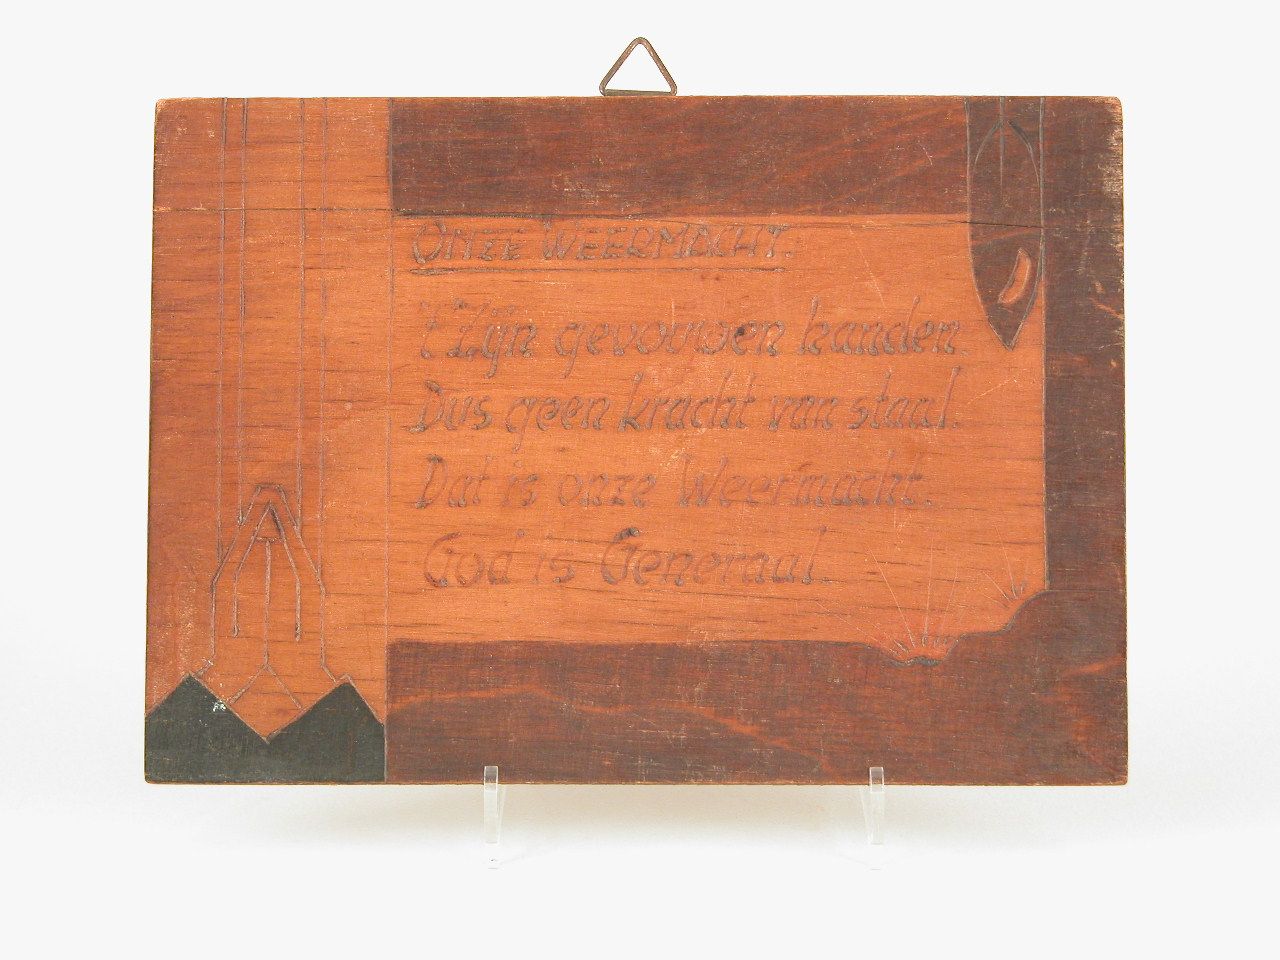 ONZE WEERMACHT.
't Zijn gevouwen handen.
Dus geen kracht van staal.
Dat is onze Weermacht.
God is Generaal.